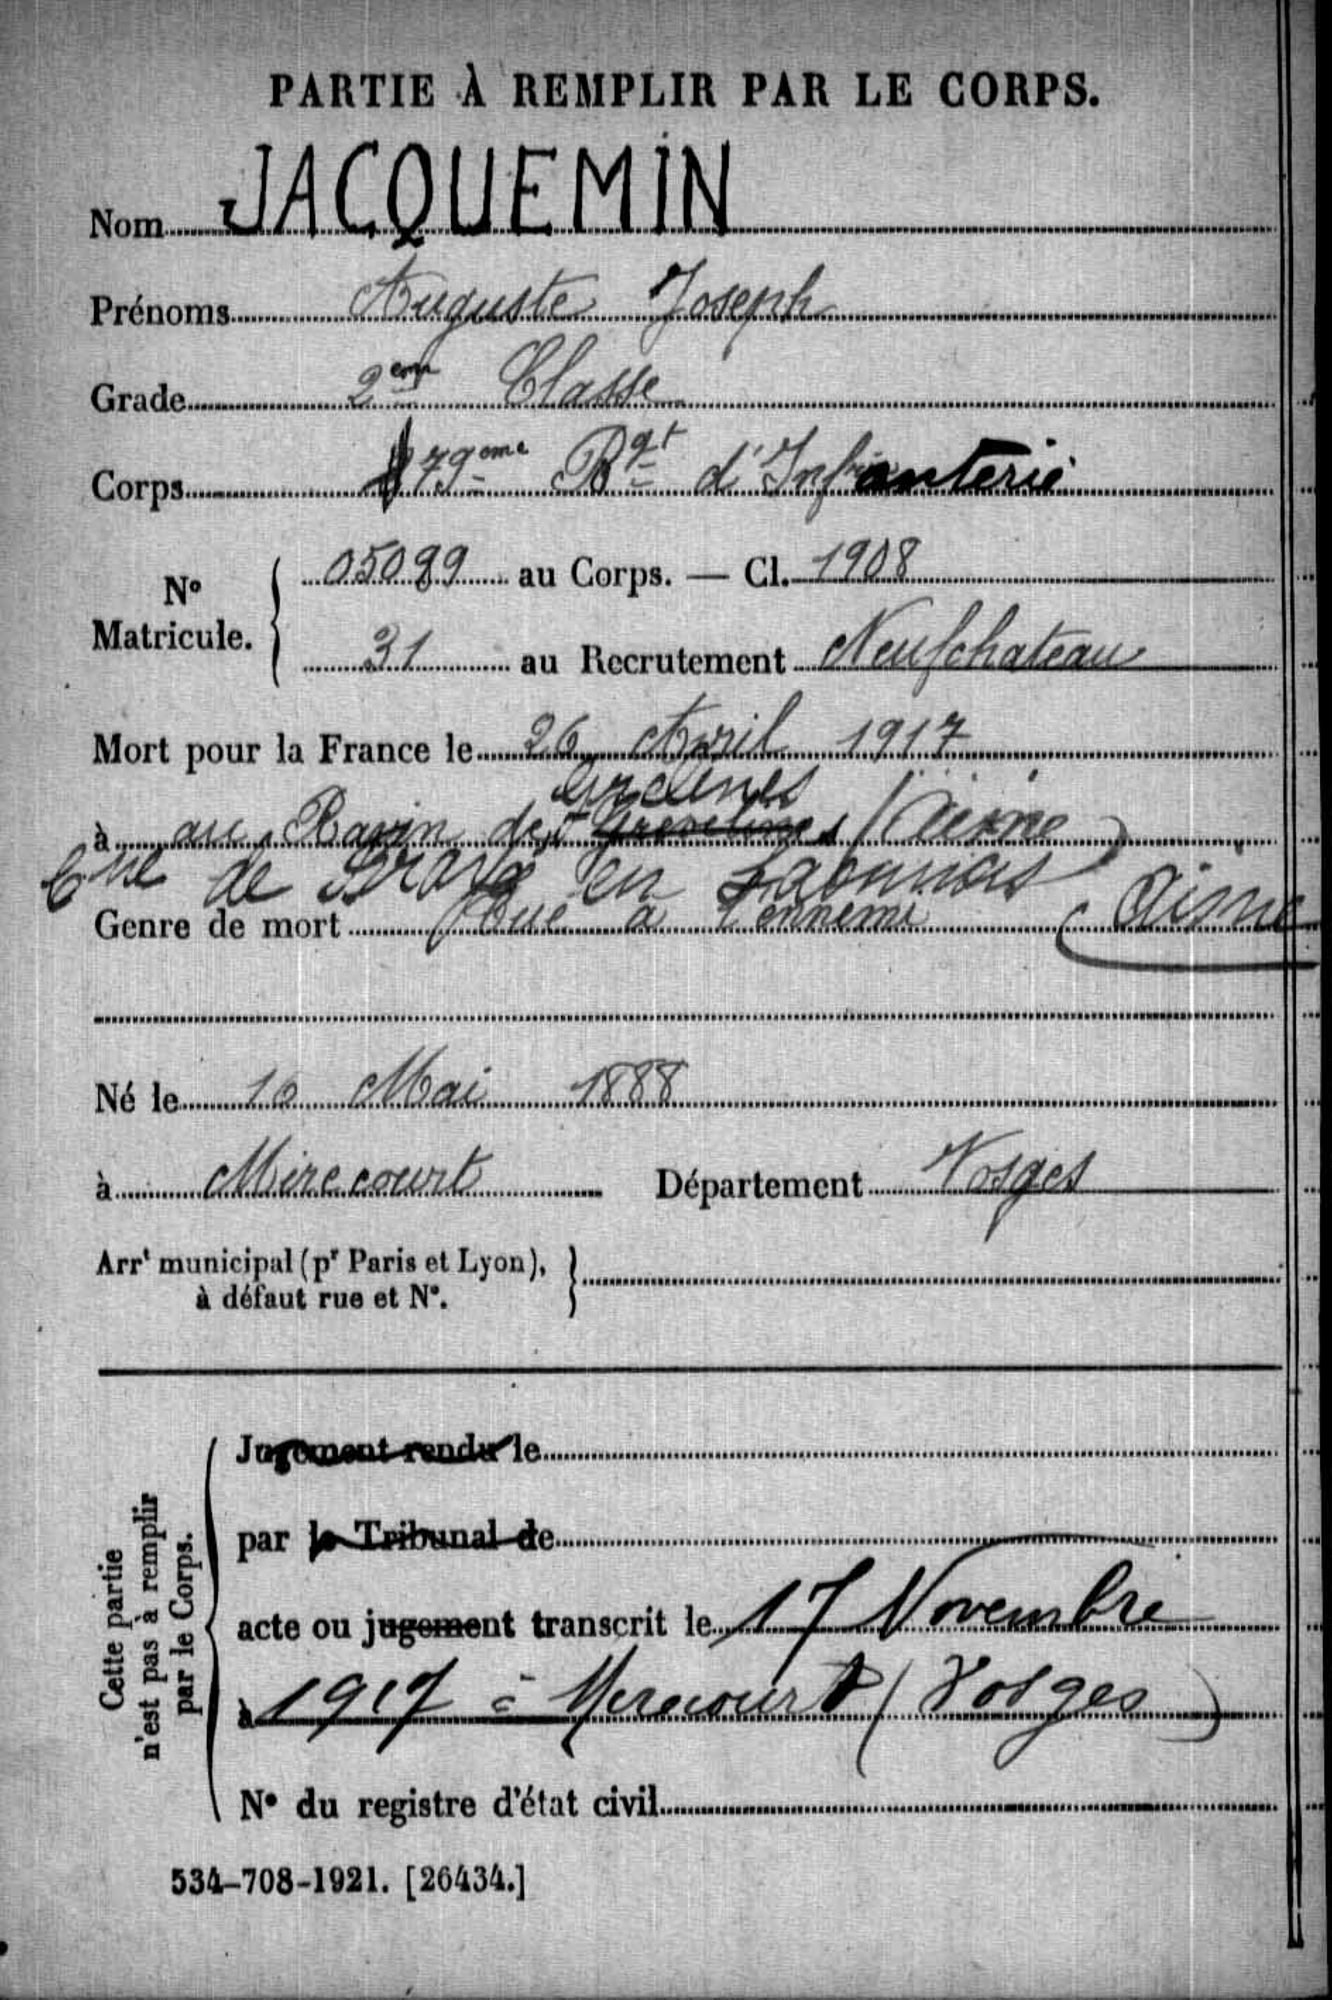 PARTIE À REMPLIR PAR LE CORPS.
Nom JACQUEMIN
Prénoms Auguste Joseph
Grade 2eme Classe
Corps 79eme Rgt d'Infanterie
No Matricule. 05099 au Corps. — Cl. 1908
31 au Recrutement Neufchateau
Mort pour la France le 26 Avril 1917
Grelines
à au Ravin des (Aisne)
Cne de Braye en Laonnois (Aisne
Genre de mort Tué à l'ennemi
Né le 10 Mai 1888
à Mirecourt Département Vosges
Arrt municipal (pr Paris et Lyon),
à défaut rue et No.
Cette partie
n'est pas à remplir
par le Corps.
Jugement rendu le
par le Tribunal de
acte ou jugement transcrit le 17 Novembre
à 1917 à Mirecourt (Vosges)
No du registre d'état civil
534-708-1921. [26434.]